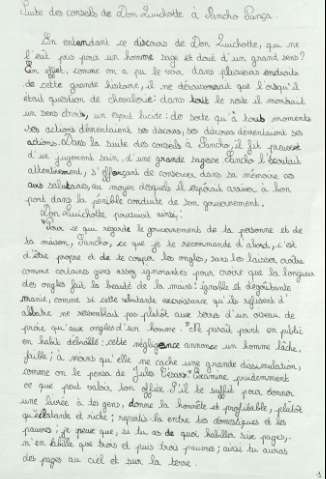 Suite des conseils de Don Quichotte à Sancho Pança.
En entendant ce discours de Don Quichotte, qui ne
l'eût pas pris pour un homme sage et doué d'un grand sens?
En effet, comme on a pu le voir dans plusieurs endroits
de cette grande histoire, il ne déraisonnait que lorsqu'il
était question de chevalerie: dans tout le reste il montrait
un sens droit, un esprit lucide: de sorte qu'à tout moments
ses actions démentaient ses discours, ses discours démentaient ses
actions. Dans la suite des conseils à Sancho, il fit preuve
d'un jugement sain, d'une grande sagesse. Sancho l'écoutait
attentivement, s'efforçant de conserver dans sa mémoire ces
avis salutaires, au moyen desquels il espérait arriver à bon
port dans la pénible conduite de son gouvernement.
Don Quichotte poursuivit ainsi:
"Pour ce qui regarde le gouvernement de ta personne et de
ta maison, Sancho, ce que je te recommande d'abord, c'est
d'être propre et de te couper les ongles, sans les laisser croître
comme certains gens assez ignorantes pour croire que la longueur
des ongles fait la beauté de la main: ignoble et dégoûtante
manie, comme si cette répugnante excroissance qu'ils refusent d'
abattre ne ressemblait pas plutôt aux serres d'un oiseau de
proie qu'aux ongles d'un homme. Ne paraît point en public
en habit débraillé: cette négligence annonce un homme lâche,
faible; à moins qu'elle ne cache une grande dissimulation,
comme on le pensa de Jules César. Examine prudemment
ce que peut valoir ton office. S'il te suffit pour donner
une livrée à tes gens, donne la honnête et profitable, plutôt
qu'éclatante et riche; répartis la entre tes domestiques et les
pauvres; je veux que, si tu as de quoi habiller six pages,
n'en habille que trois et puis trois pauvres; ainsi tu auras
des pages au ciel et sur la terre.